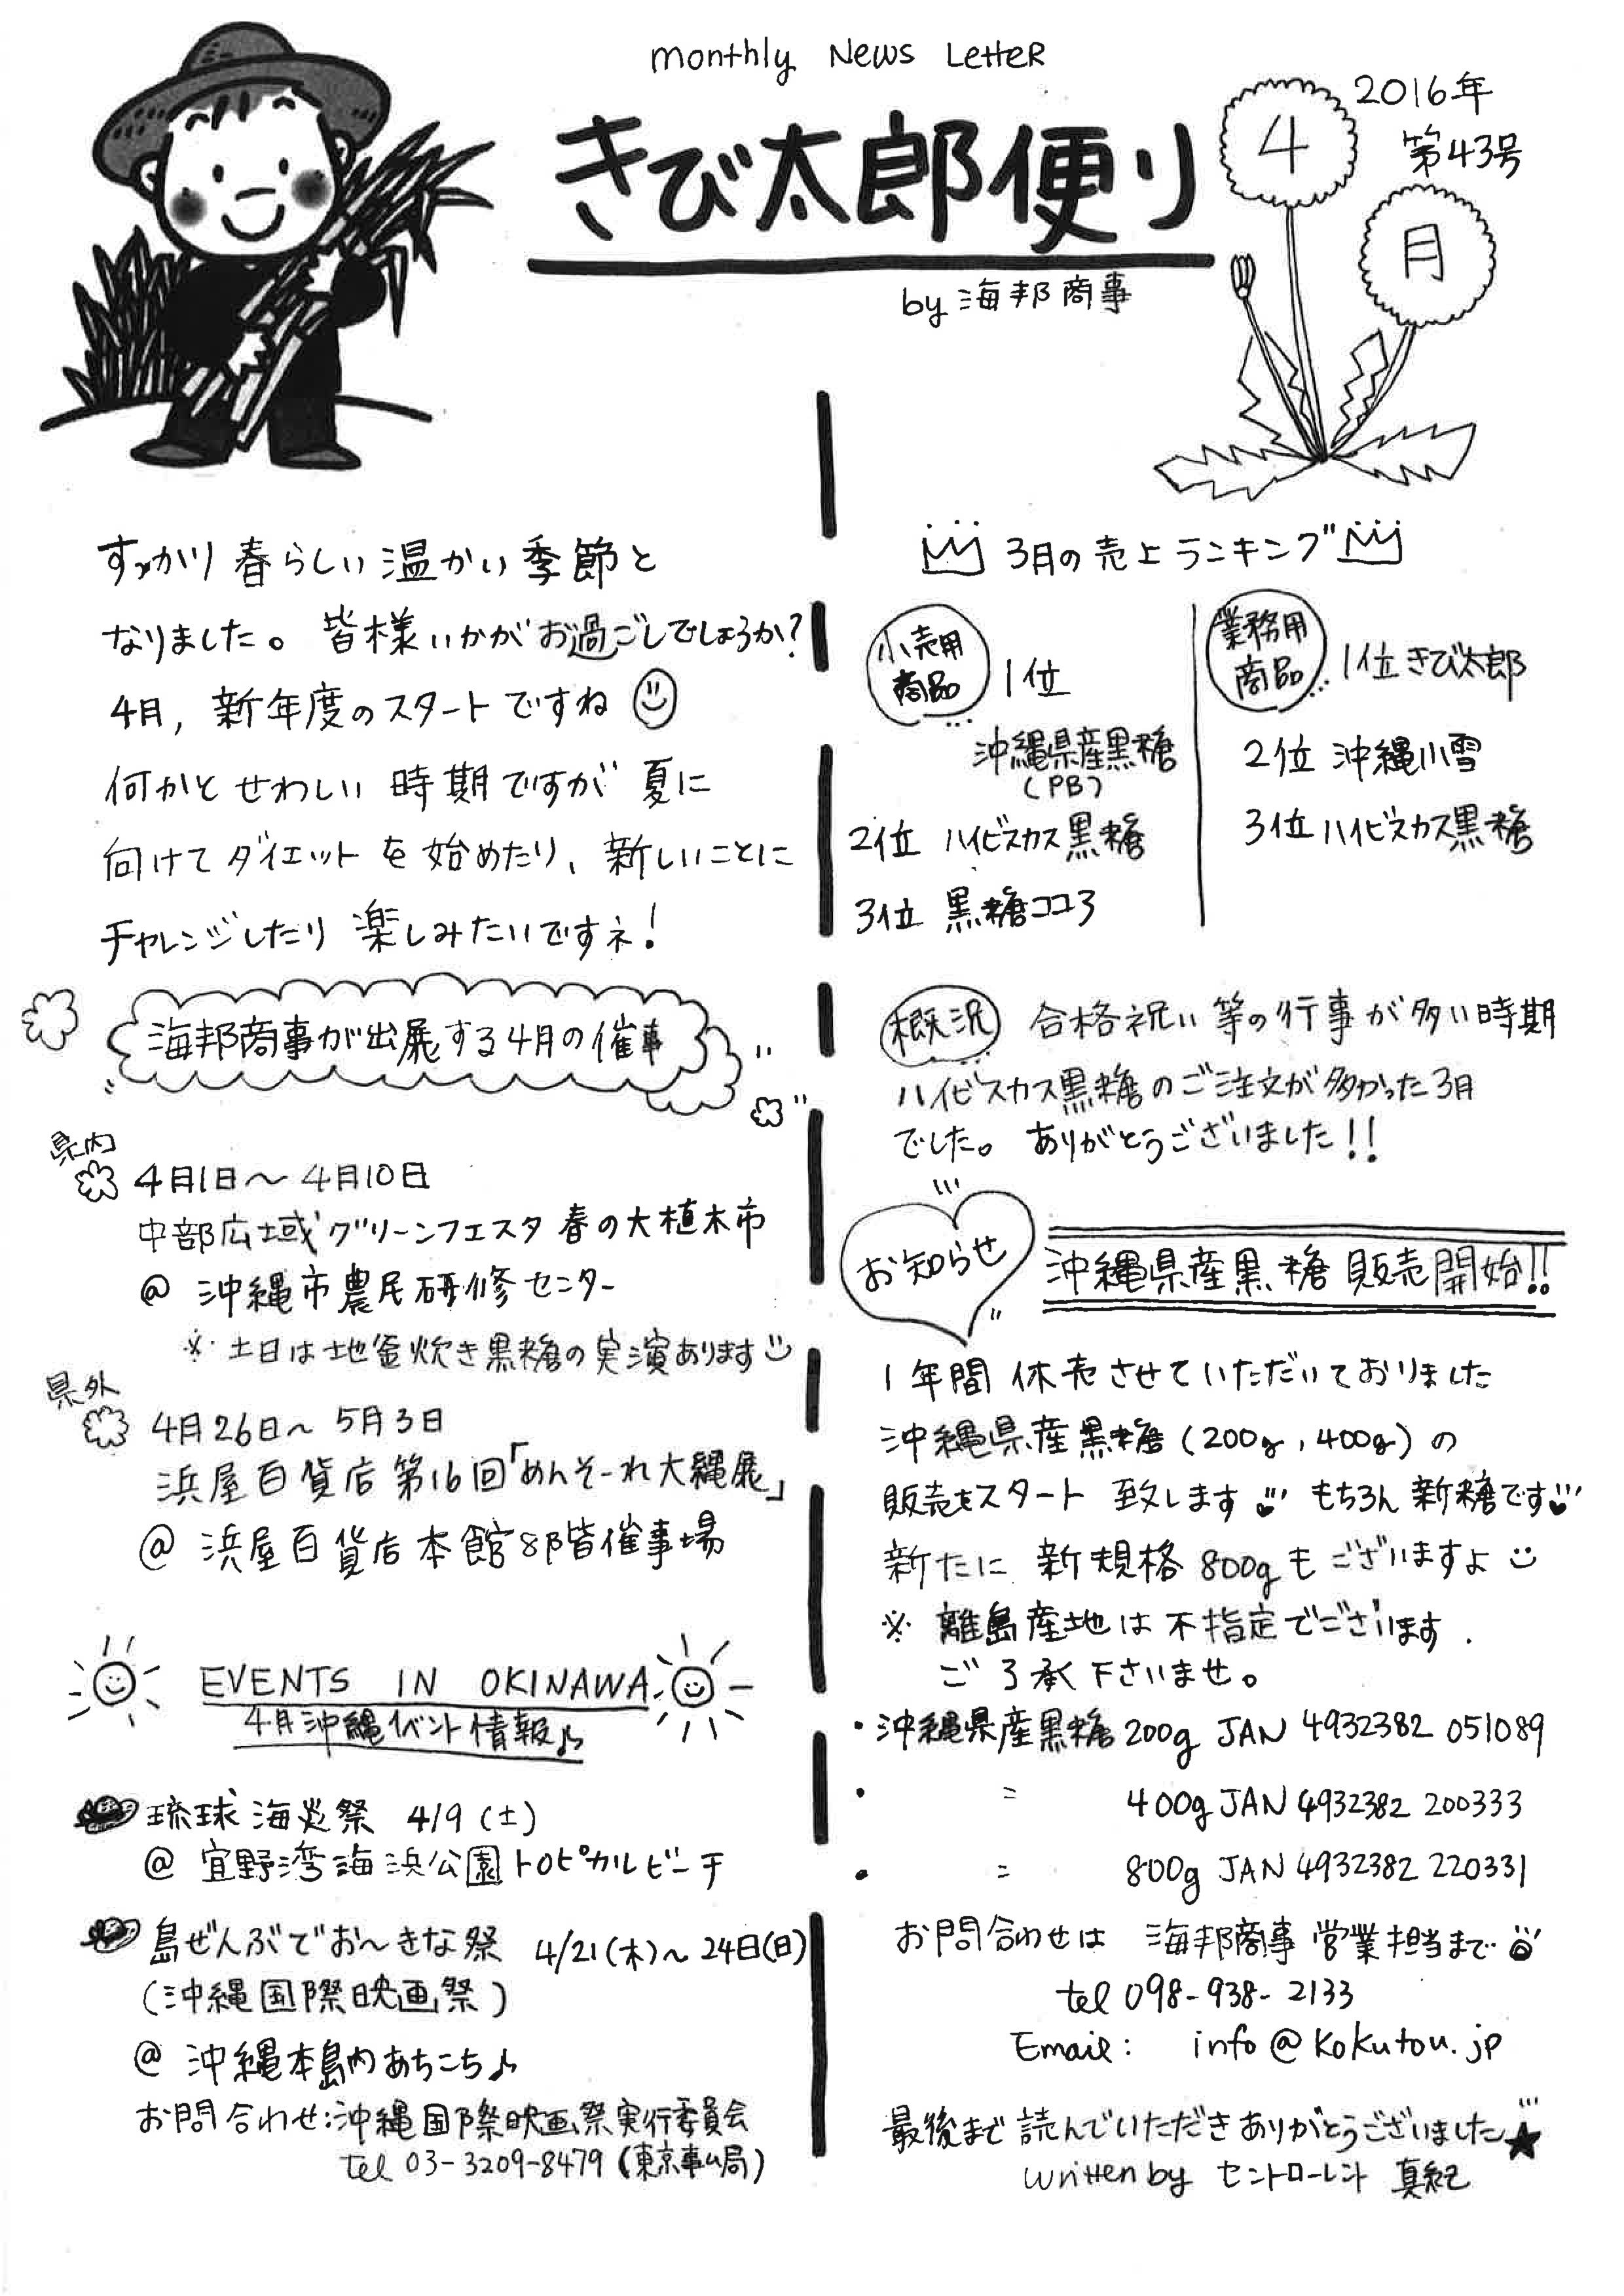 monthly News Letter
きび太郎便り
by 海邦商事
2016年
第43号
4
月
すっかり春らしい温かい季節と
なりました。皆様いかがお過ごしでしょうか?
4月,新年度のスタートですね
何かとせわしい時期ですが夏に
向けてダイエットを始めたり、新しいことに
チャレンジしたり楽しみたいですネ!
海邦商事が出展する4月の催事
県内
4月1日〜4月10日
中部広域グリーンフェスタ 春の大植木市
@ 沖縄市農民研修センター
※土日は地釜炊き黒糖の実演あります
県外
4月26日〜5月3日
浜屋百貨店第16回「めんそーれ大縄展」
@ 浜屋百貨店本館8階催事場
EVENTS IN OKINAWA
4月沖縄イベント情報♪
琉球海炎祭 4/9(土)
@ 宜野湾海浜公園トロピカルビーチ
島ぜんぶでおーきな祭 4/21(木)〜24日(日)
(沖縄国際映画祭)
@ 沖縄本島内あちこち♪
お問合わせ:沖縄国際映画祭実行委員会
tel 03-3209-8479(東京事ム局)
3月の売上ランキング
小売用
商品
1位
沖縄県産黒糖
(PB)
2位 ハイビスカス黒糖
3位 黒糖ココろ
業務用
商品
1位 きび太郎
2位 沖縄小雪
3位 ハイビスカス黒糖
概況 合格祝い等の行事が多い時期
ハイビスカス黒糖のご注文が多かった3月
でした。ありがとうございました!!
お知らせ
沖縄県産黒糖 販売開始!!
1年間休売させていただいておりました
沖縄県産黒糖(200g,400g)の
販売をスタート致します もちろん新糖です
新たに新規格800gもございますよ
※ 離島産地は不指定でございます.
ご了承下さいませ。
・沖縄県産黒糖200g JAN 4932382 051089
・ 〃 400g JAN 4932382 200333
・ 〃 800g JAN 4932382 220331
お問合わせは 海邦商事 営業担当まで
tel 098-938-2133
Email: info@kokutou.jp
最後まで読んでいただきありがとうございました★
written by セントローレント 真紀